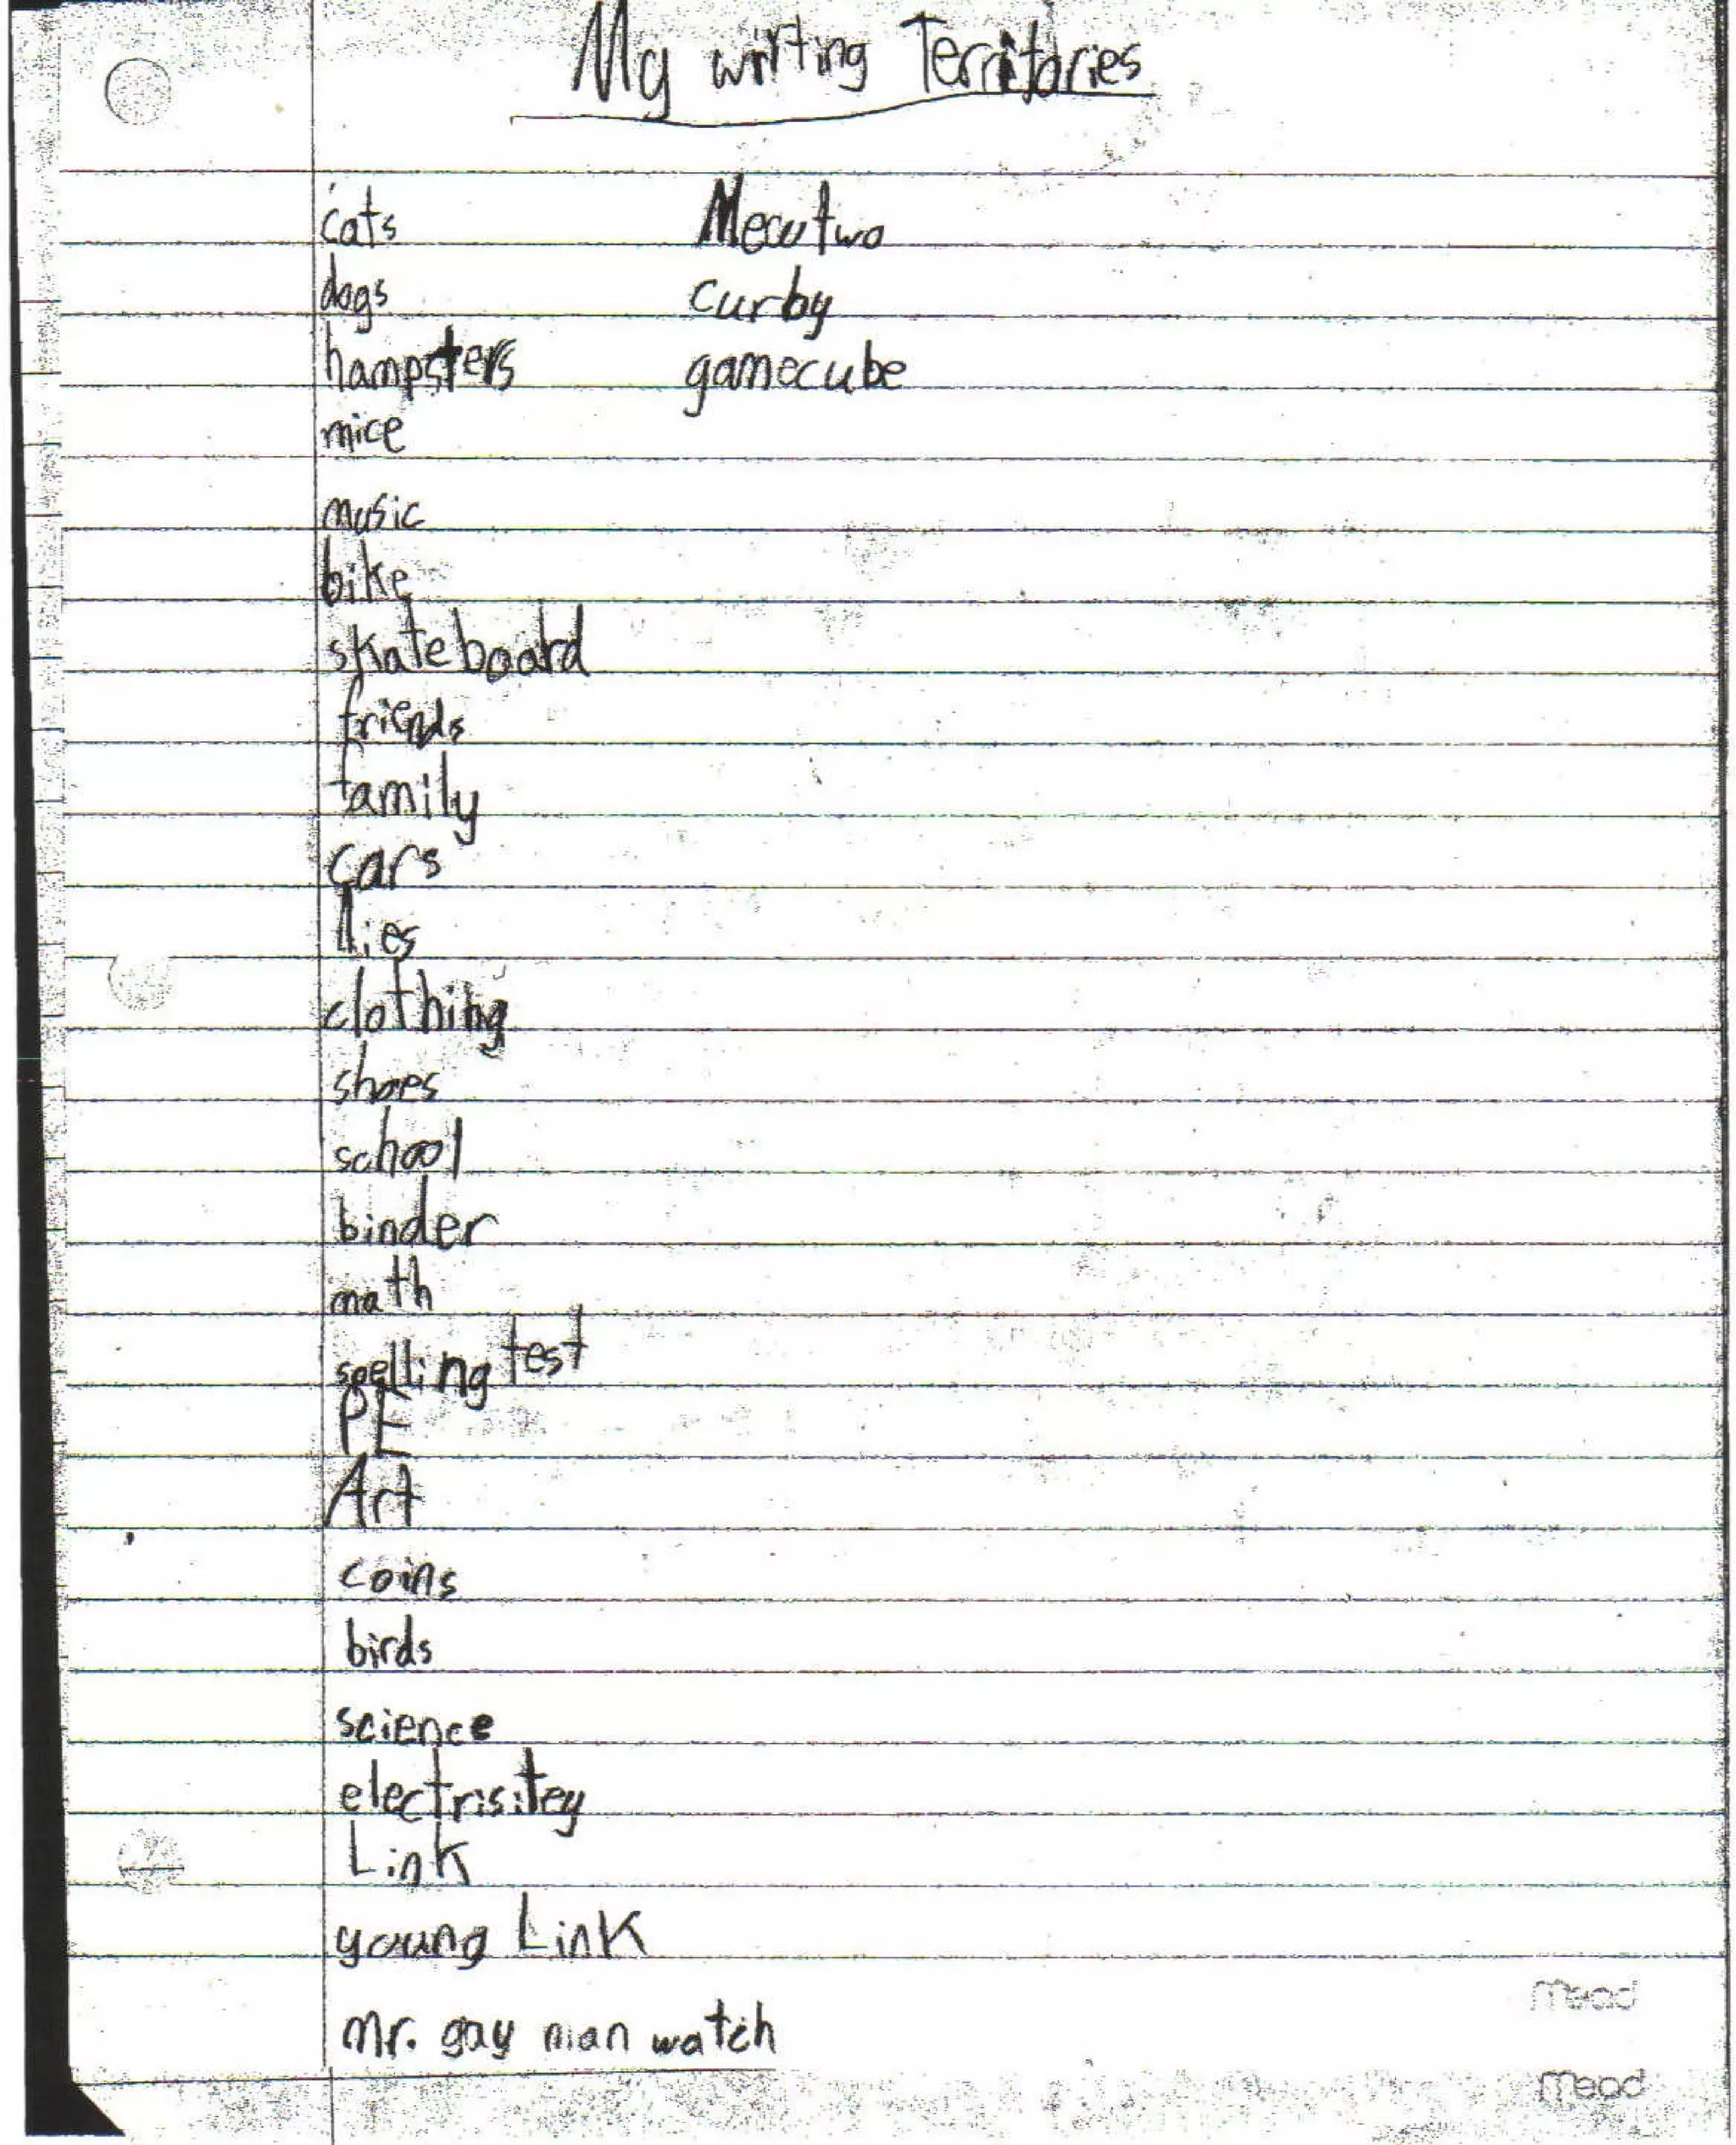 My writing Territories
cats
dogs
hampsters
mice
music
bike
skateboard
friends
family
cars
lies
clothing
shoes
school
binder
math
spelling test
PE
Art
coins
birds
science
electrisitey
Link
young Link
mr. gay man watch
Mecutwo
curby
gamecube
mead
mead